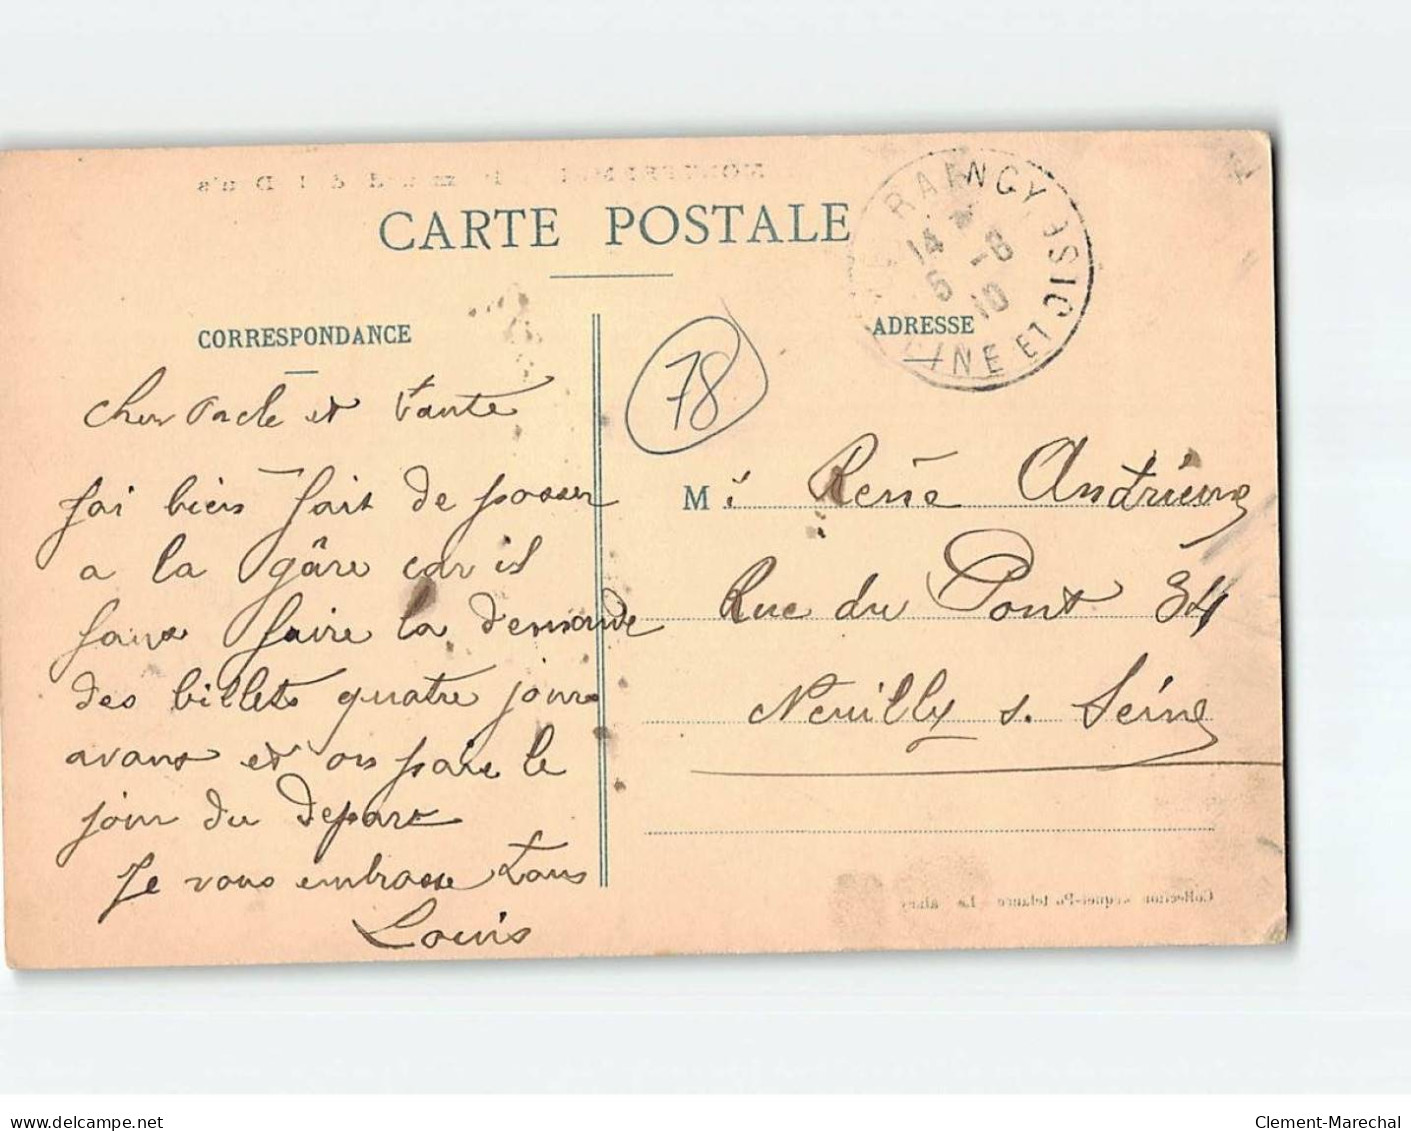 CARTE POSTALE
CORRESPONDANCE
ADRESSE
RAINCY
14
5 -8
10
SEINE ET OISE
78
Cher Oncle et Tante
Jai bien fait de passer
a la gâre car il
faut faire la demande
des billets quatre jours
avant et on paie le
jour du depart
Je vous embrasse Tous
Louis
M. René Andrieux
Rue du Pont 34
Neuilly s. Seine
delcampe.net
Clement-Marechal